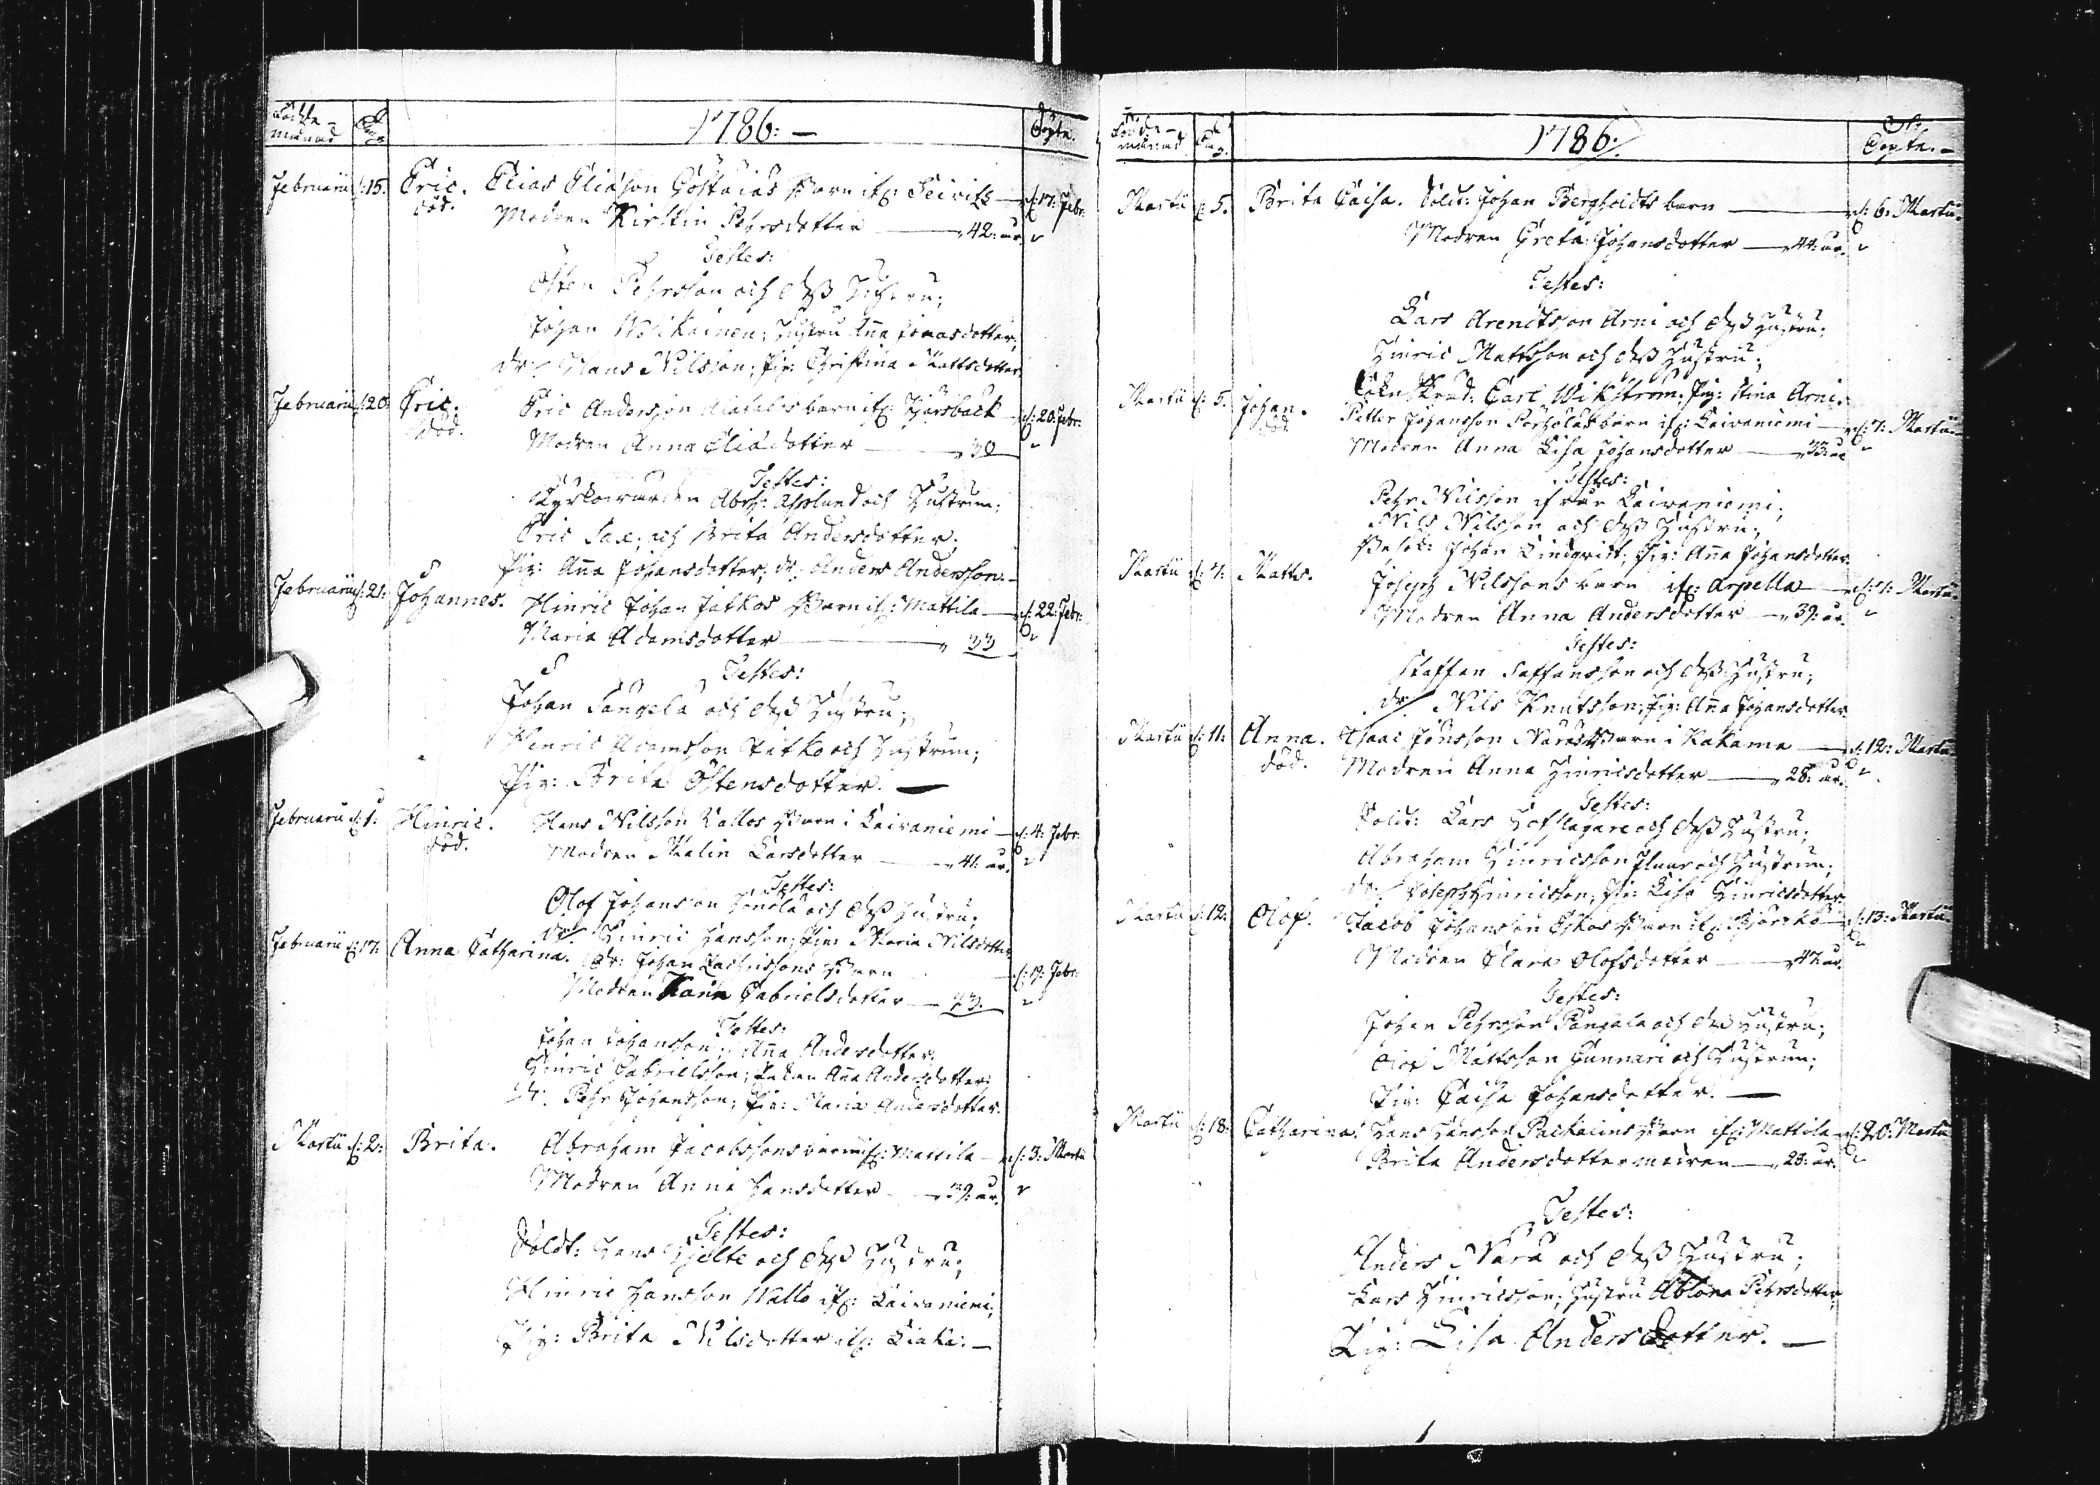 Födde-månad Dag 1786:— Döpte.
Februarii d: 15. Eric. Elias Eliason Gostaias Barn ifr: Seivits d: 17: Febr.
död. Modren Kirstin Pehrsdotter 42: år
Testes:
Östen Pehrsson och dess Hustru;
Johan Woikainen; Hustru Aña Jonasdotter,
dr: Hans Nilsson; Pig: Christina Mattsdotter.
Februarii d: 20: Eric. Eric Andersson Alatalos barn ifr: Björsback d: 20: Febr.
död. Modren Anna Eliædotter 30
Testes:
Kyrkowärden Abrh: Asplund och Hustrun;
Eric Sax; och Brita Andersdotter.
Pig: Aña Johansdotter; dr: Anders Andersson.—
Februarii d: 21: Johannes. Hinric Johan Jatkos Barn if: Mattila d: 22: Febr:
Maria Adamsdotter 33
Testes:
Johan Sangela och dess Hustru;
Henric Adamsson Jatko och Hustrun;
Pig: Brita Östensdotter.—
Februarii d: 1: Hinric. Hans Nilsson Vallos Barn i Laivaniemi d: 4: Febr:
död. Modren Malin Larsdotter 41: år.
Testes:
Olof Johansson och dess Hustru;
dr: Hinric Hansson; Pig: Maria Nilsdotter
Februarii d: 17: Anna Catharina. dr: Johan Zachrissons Barn d: 19: Febr:
Modren Karin Gabrielsdotter 23.
Testes:
Johan Johansson; Aña Andersdotter;
Hinric Gabrielsson; Aña Andersdotter;
dr: Pehr Johansson; Pig: Maria Andersdotter.
Martii d: 2: Brita. Abraham Jacobssons barn ifr: Mattila d: 3: Martii
Modren Anna Hansdotter 39: år.
Testes:
Soldt: Hans Hjelte och dess Hustru;
Hinric Hansson Wallo ifr: Laivaniemi;
Pig: Brita Nilsdotter ifr: Liaka.—
Födde-månad Dag. 1786. Döpte.—
Martii d: 5. Brita Caisa. Soldt: Johan Bergholdts barn d: 6: Martii.
Modren Greta Johansdotter 44: år.
Testes:
Lars Arendtsson Arni och dess Hustru;
Hinric Mattsson och dess Hustru;
Carl Wikström; Pig: Stina Arni.
Martii d: 5. Johan. Petter Johansson Porholas barn ifr: Laivaniemi d: 7: Martii
död. Modren Anna Lisa Johansdotter 33: år
Testes:
Pehr Nilsson ifrån Laivaniemi;
Nils Nilsson och dess Hustru;
Johan Lindqvist; Pig: Aña Johansdotter.
Martii d: 7: Matts. Joseph Nilssons barn ifr: Arpella d: 7: Martii
Modren Anna Andersdotter 39: år.
Testes:
Staffan Staffansson och dess Hustru;
dr: Nils Knutsson; Pig: Aña Johansdotter
Martii d: 11: Anna. Isaac Jönsson Naras Barn i Kakama d: 12: Martii
död. Modren Anna Hinricsdotter 28: år.
Testes:
Soldt: Lars Hofslagare och dess Hustru;
Abraham Hinricsson och Hustrun;
dr: Joseph Hinricsson; Pig: Lisa Hinricsdotter
Martii d: 12: Olof. Jacob Johansson Eskos Barn if: Björkö d: 13: Martii
Modren Clara Olofsdotter 42: år.
Testes:
Johan Pehrsson Pangala och dess Hustru;
Olof Mattsson Gunnari och Hustrun;
Pig: Caisa Johansdotter.—
Martii d: 18: Catharina. Hans Hansson Packalins Barn ifr: Mattila d: 20: Martii
Brita Andersdotter modren 28: år.
Testes:
Anders Nara och dess Hustru;
Lars Hinricsson; Hustru Ablona Pehrsdotter;
Pig: Lisa Andersdotter.—